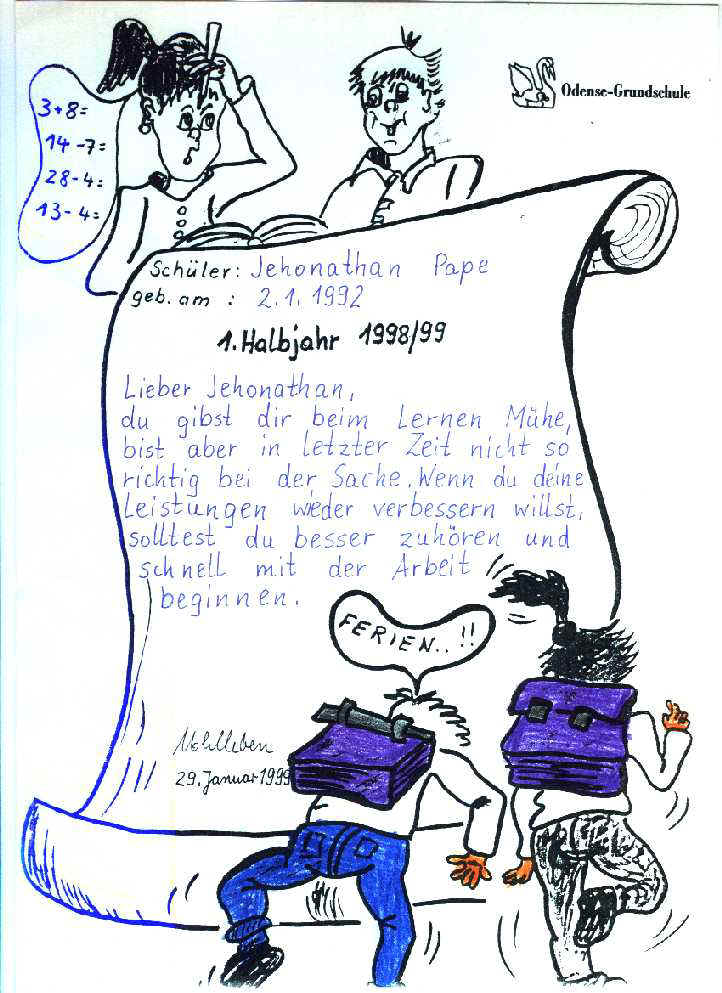 Odense-Grundschule
3+8=
14-7=
28-4=
13-4=
Schüler: Jehonathan Pape
geb. am : 2.1.1992
1. Halbjahr 1998/99
Lieber Jehonathan,
du gibst dir beim Lernen Mühe,
bist aber in letzter Zeit nicht so
richtig bei der Sache. Wenn du deine
Leistungen wieder verbessern willst,
solltest du besser zuhören und
schnell mit der Arbeit
beginnen.
FERIEN..!!
29. Januar 1999